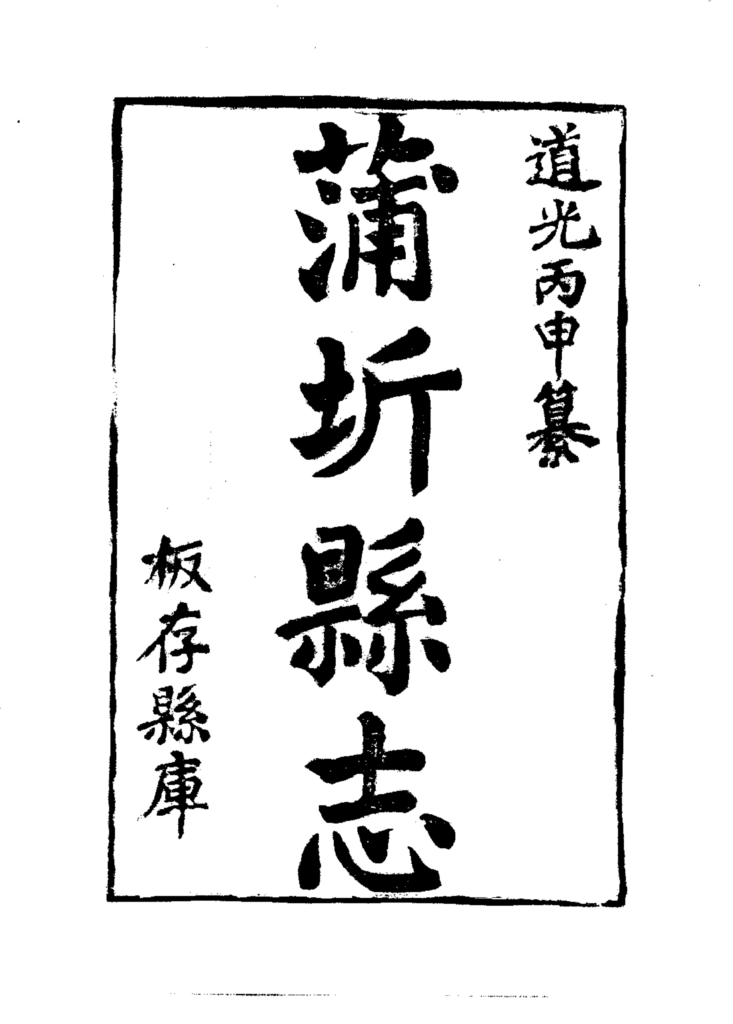 道光丙申纂
蒲圻縣志
板存縣庫